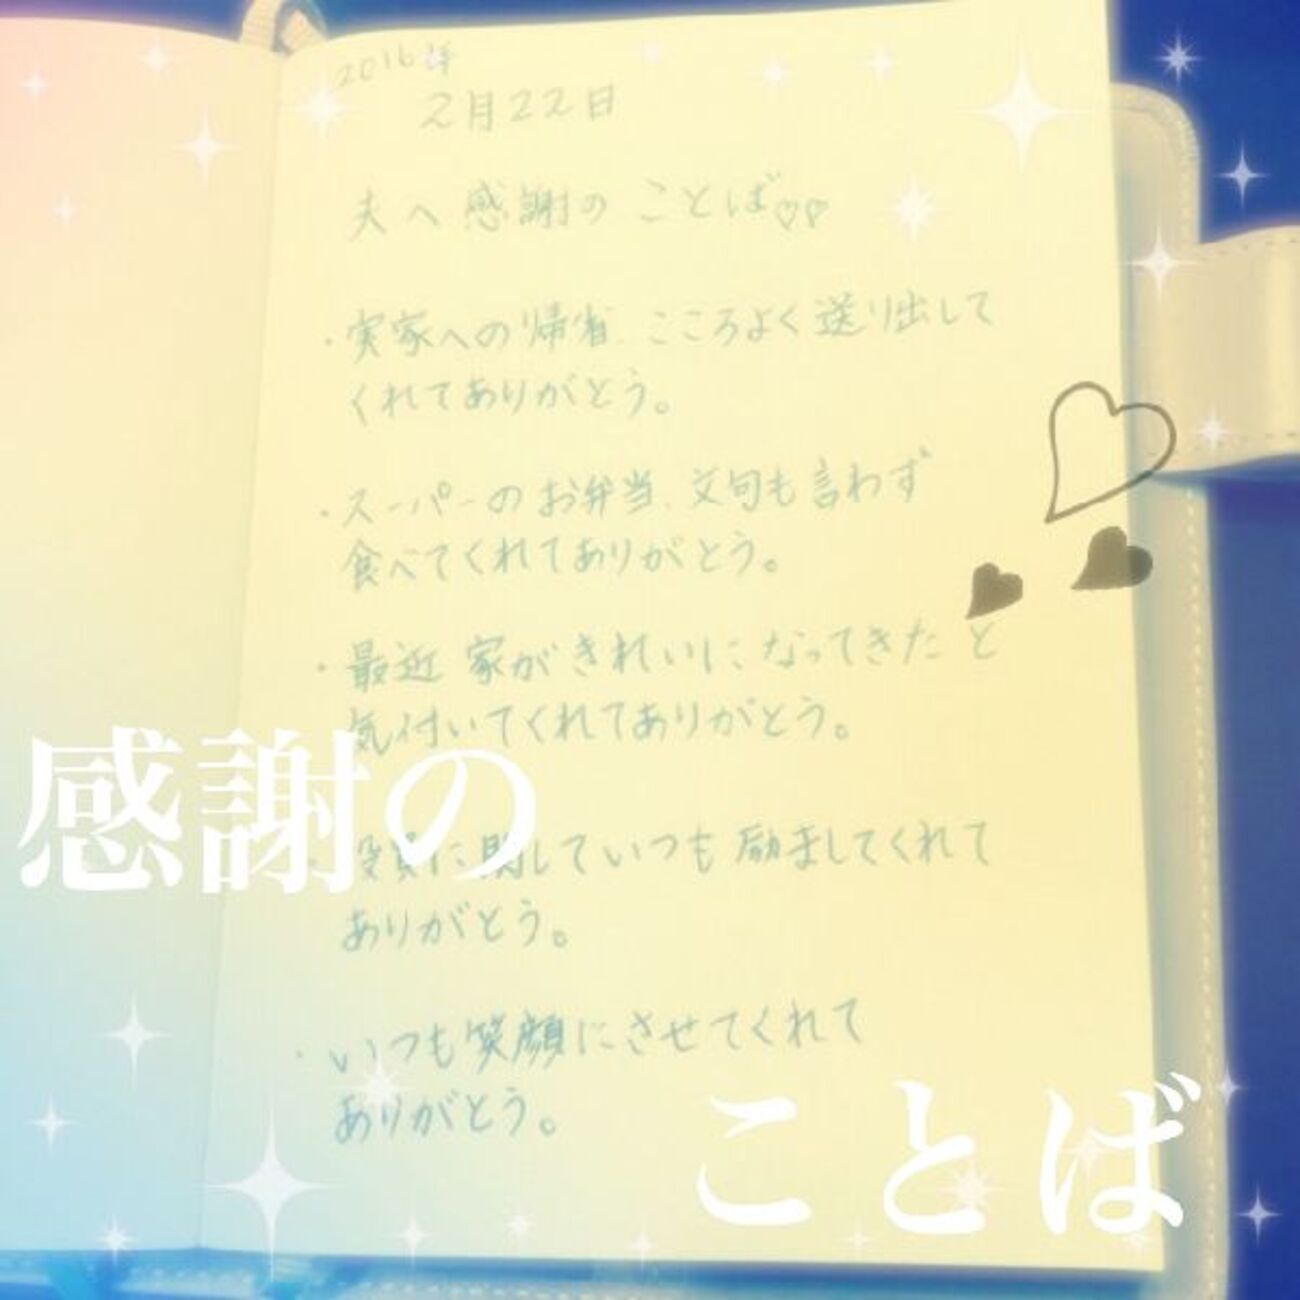 2016年
2月22日
夫へ感謝のことば♡♡
・実家への帰省、こころよく送り出して
くれてありがとう。
・スーパーのお弁当、文句も言わず
食べてくれてありがとう。
・最近 家がきれいになってきたと
気付いてくれてありがとう。
感謝の
・役員に関していつも励ましてくれて
ありがとう。
・いつも笑顔にさせてくれて
ありがとう。
ことば